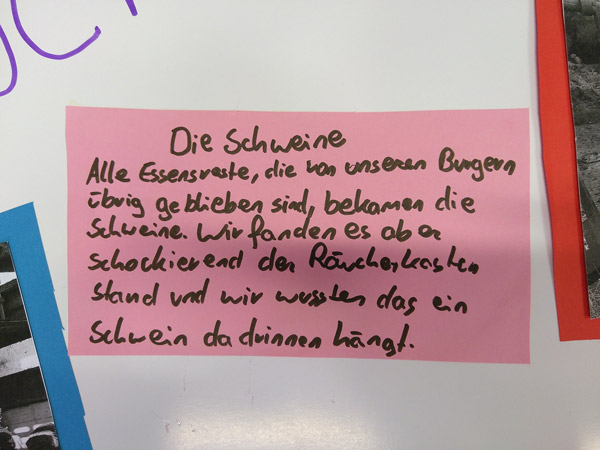 Die Schweine
Alle Essensreste, die von unseren Burgern
übrig geblieben sind, bekamen die
Schweine. Wir fanden es aber
schockierend der Räucherkasten
stand und wir wussten das ein
Schwein da drinnen hängt.